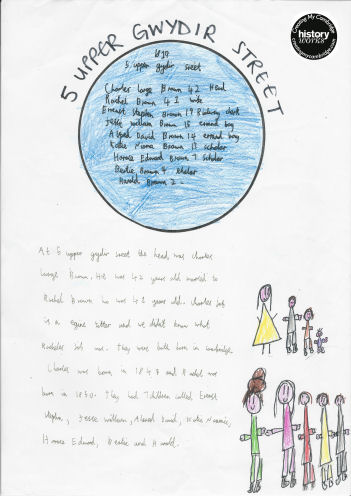 Creating My Cambridge
history
WORKS
creatingmycambridge.com
5 UPPER GWYDIR STREET
5 upper gydir sreet
Charles large Brown 42 Head
Rachel Brown 41 wife
Ernest Stephen Brown 19 Railway clerk
Jesse william Brown 15 errand boy
Alfred David Brown 14 errand boy
Katie Brown 13 scholar
Horace Edward Brown 7 scholar
Beslie Brown 4 scholar
Harold Brown 2 -
At 5 upper gydir sreet the head was charles
large Brown. He was 42 years old married to
Rachel Brown who was 41 years old. charles job
is a egine fitter and we didn't know what
Rachels job was. They were both born in cambridge.
Charles was born in 1849 and Rachel was
born in 1850. They had 7 children called Ernest
Stephen, Jesse william, Alfred David, Katie
Horace Edward, Beslie and Harold.